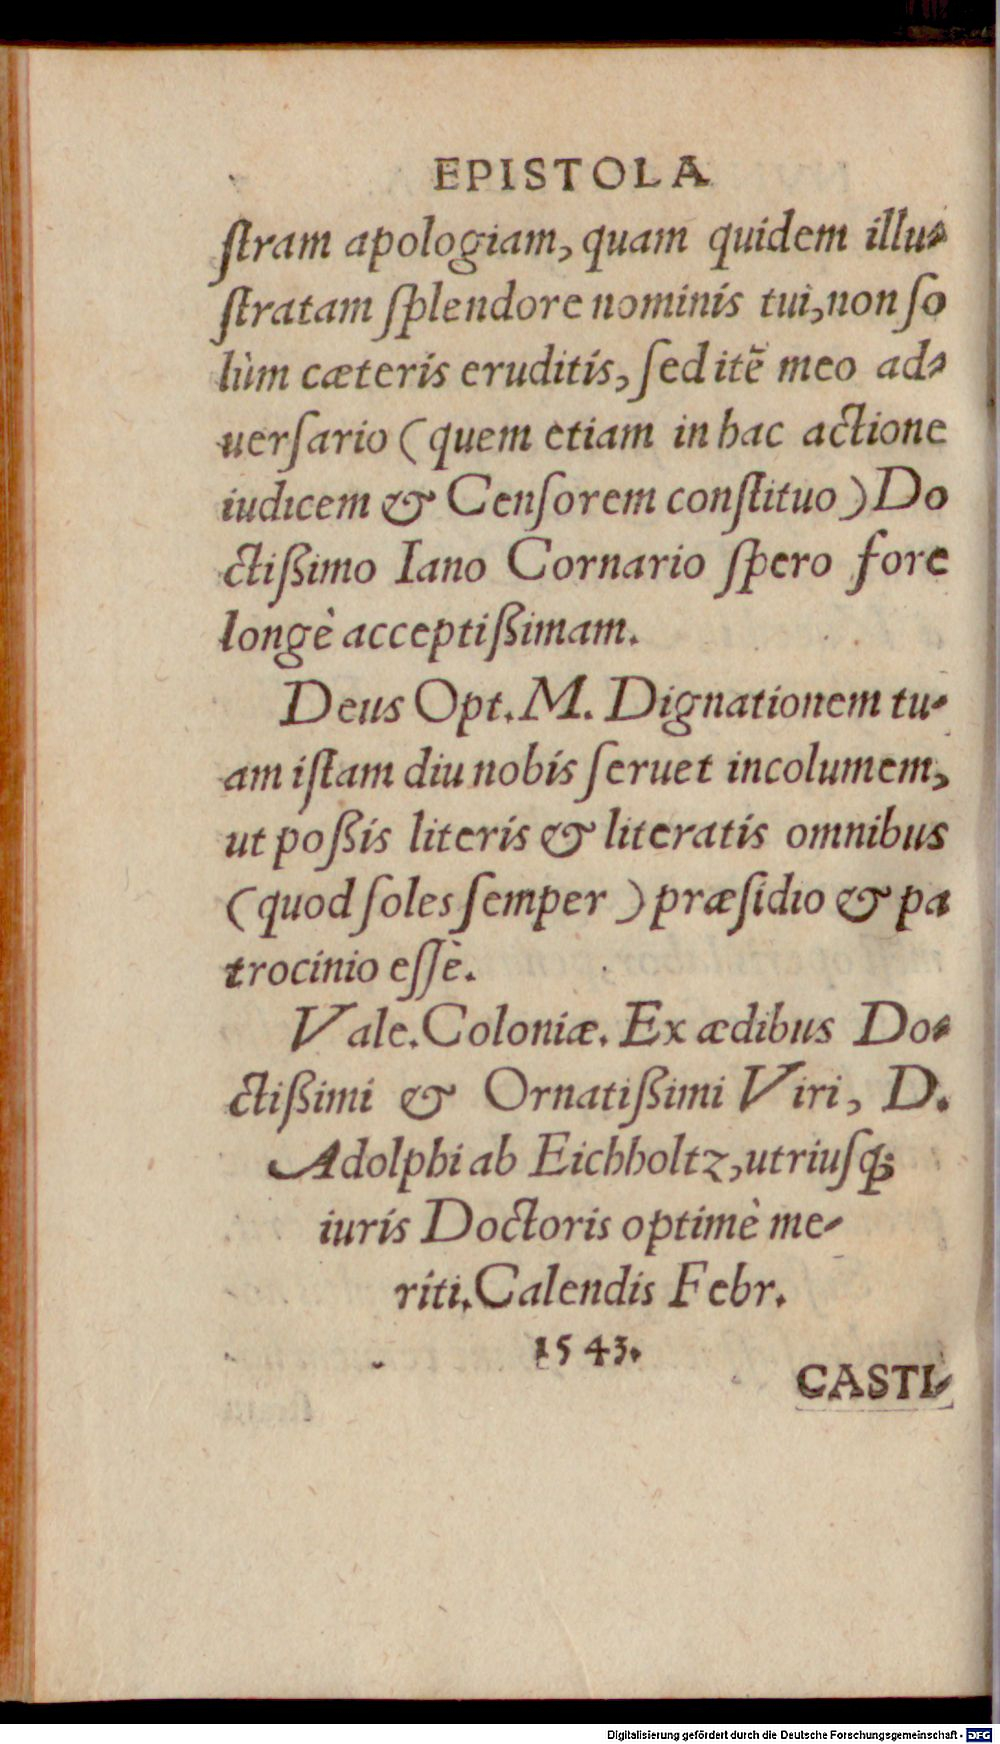 EPISTOLA
ſtram apologiam, quam quidem illu-
ſtratam ſplendore nominis tui, non ſo
lùm cæteris eruditis, ſed itẽ meo ad-
uerſario (quem etiam in hac actione
iudicem & Cenſorem conſtituo) Do
ctißimo Iano Cornario ſpero fore
longè acceptißimam.
Deus Opt. M. Dignationem tu-
am iſtam diu nobis ſeruet incolumem,
ut poßis literis & literatis omnibus
(quod ſoles ſemper) præſidio & pa
trocinio eſſè.
Vale. Coloniæ. Ex ædibus Do-
ctißimi & Ornatißimi Viri, D.
Adolphi ab Eichholtz, utriuſq;
iuris Doctoris optimè me-
riti. Calendis Febr.
1543.
CASTI-
Digitalisierung gefördert durch die Deutsche Forschungsgemeinschaft - DFG